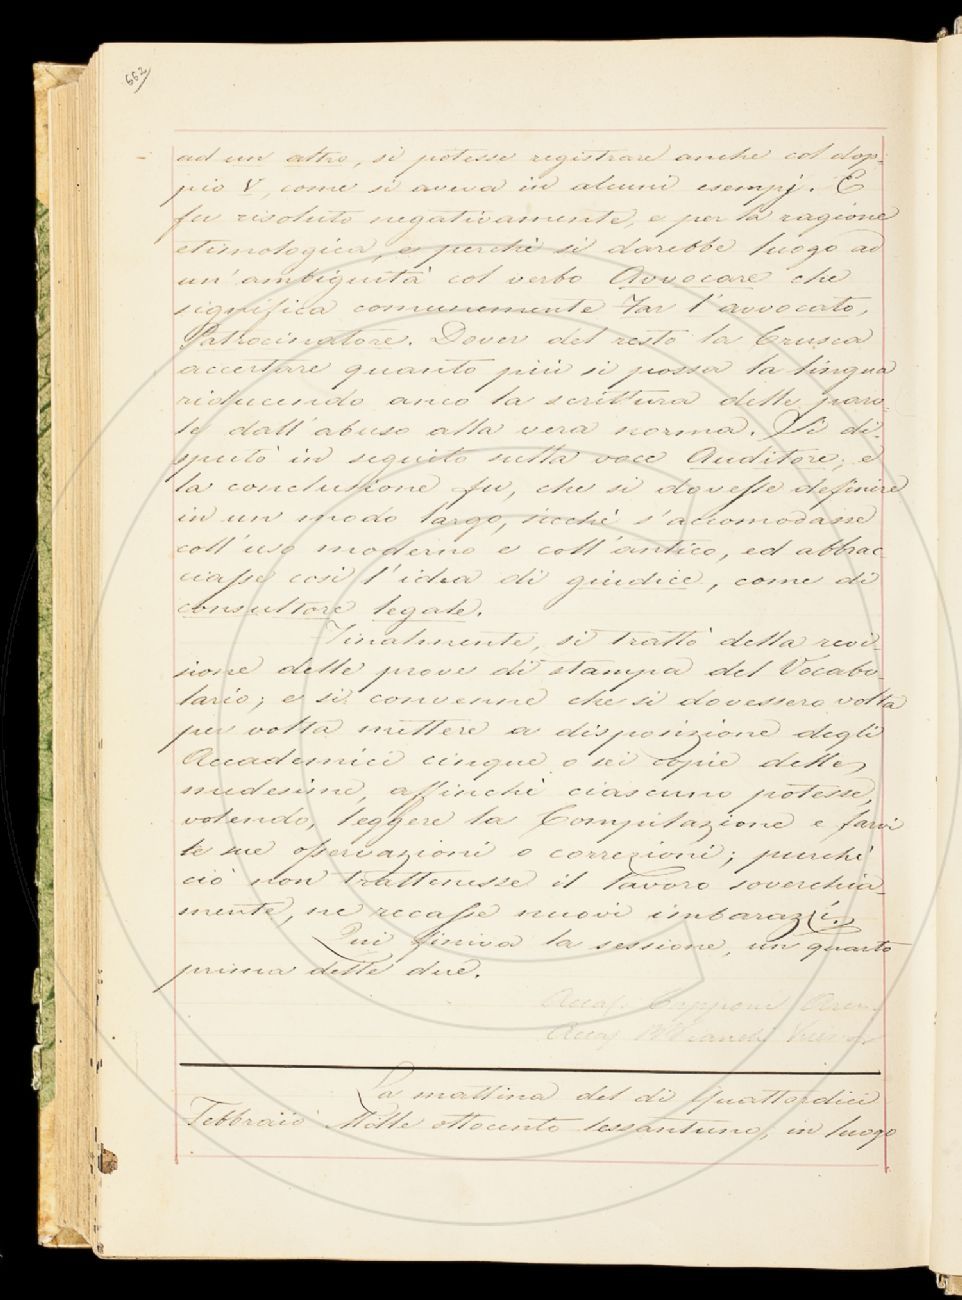 662
ad un altro, si potesse registrare anche col dop-
pio V, come si aveva in alcuni esempj. E
fu risoluto negativamente, e per la ragione
etimologica, e perchè si darebbe luogo ad
un'ambiguità col verbo Avvocare che
significa comunemente Far l'avvocato,
Patrocinatore. Dover del resto la Crusca
accertare quanto più si possa la lingua
riducendo anco la scrittura delle paro-
le dall'abuso alla vera norma. Si di-
sputò in seguito sulla voce Auditore; e
la conclusione fu, che si dovesse definire
in un modo largo, sicchè s'accomodasse
coll'uso moderno e coll'antico, ed abbrac-
ciasse così l'idea di giudice, come di
consultore legale.
Finalmente, si trattò della revi-
sione delle prove di stampa del Vocabo-
lario; e si convenne che si dovessero volta
per volta mettere a disposizione degli
Accademici cinque o sei copie delle
medesime, affinchè ciascuno potesse,
volendo, leggere la Compilazione e farvi
le sue osservazioni o correzioni; purchè
ciò non trattenesse il lavoro soverchia-
mente, nè recasse nuovi imbarazzi.
Qui finiva la sessione, un quarto
prima delle due.
Accad. Capponi
Accad. Bianchi
La mattina del dì Quattordici
Febbraio Mille ottocento sessantuno, in luogo